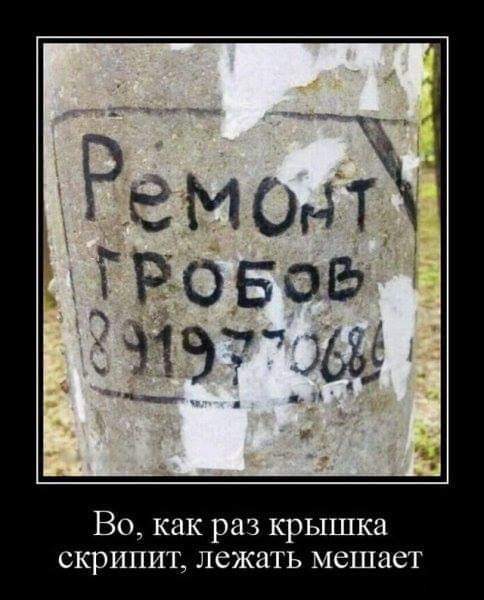 Ремонт
гробов
8919770686
Во, как раз крышка
скрипит, лежать мешает